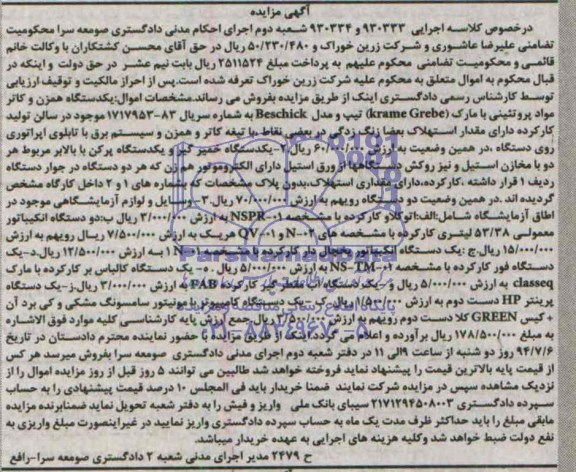 آگهی مزایده
درخصوص کلاسه اجرایی ۹۳۰۳۳۳ و ۹۳۰۳۳۴ شعبه دوم اجرای احکام مدنی دادگستری صومعه سرا محکومیت
تضامنی علیرضا عاشوری و شرکت زرین خوراک و ۵۰/۲۳۰/۴۸۰ ریال در حق آقای محسن کشتکاران با وکالت خانم
قائمی و محکومیت تضامنی محکوم علیهم به پرداخت مبلغ ۲۵۱۱۵۲۴ ریال بابت نیم عشر در حق دولت و اینکه در
قبال محکوم به اموال متعلق به محکوم علیه شرکت زرین خوراک تعرفه شده است.پس از احراز مالکیت و توقیف ارزیابی
توسط کارشناس رسمی دادگستری اینک از طریق مزایده بفروش می رساند.مشخصات اموال:یکدستگاه همزن و کاتر
مواد پروتئینی با مارک (krame Grebe) تیپ و مدل Beschick به شماره سریال ۸۳-۱۷۱۷۹۵۳ موجود در سالن تولید
کارکرده دارای مقدار استهلاک بعضا زنگ زدگی در بعضی نقاط ،با تیغه کاتر و همزن و سیستم برق با تابلوی اپراتوری
روی دستگاه ،در همین وضعیت به ارزش ۶۰/۰۰۰/۰۰۰ ریال ۲-یکدستگاه خمیر گیر و یکدستگاه پرکن با بالابر مربوط هر
دو با مخازن استیل و نیز روکش دستگاهها از ورق استیل دارای الکتروموتور هم زن که هر دو دستگاه در جوار دستگاه
ردیف ۱ قرار داشته ،کارکرده،دارای مقداری استهلاک،بدون پلاک مشخصات که شماره های ۱ و ۲ داخل کارگاه مشخص
گردیده اند .در همین وضعیت دو دستگاه رویهم به ارزش ۷۰/۰۰۰/۰۰۰ ریال.۳-وسایل و لوازم آزمایشگاهی موجود در
اطاق آزمایشگاه شامل:الف:اتوکلاو کارکرده با مشخصه NSPR-۰۱ به ارزش ۳/۰۰۰/۰۰۰ ریال ب:دو دستگاه انکیباتور
معمولی ۵۳/۳۸ لیتری کارکرده با مشخصه های N-۰۲ و QV-۰۰۱ هریک به ارزش ۷/۵۰۰/۰۰۰ ریال رویهم به ارزش
۱۵/۰۰۰/۰۰۰ ریال.ج :یک دستگاه انکیباتور یخچال دار کارکرده با مشخصه N-۰۱ به ارزش ۱۲/۵۰۰/۰۰۰ ریال.د-یک
دستگاه فور کارکرده با مشخصه NS-TM-۰۱ به ارزش ۵/۰۰۰/۰۰۰ ریال .ه-یک دستگاه کالباس بر کارکرده با مارک
classeq به ارزش ۵/۰۰۰/۰۰۰ ریال و-یک دستگاه آب مقطر گیر کارکرده PAB به ارزش ۳/۰۰۰/۰۰۰ ریال.ز-یک دستگاه
پرینتر HP دست دوم به ارزش ۱/۵۰۰/۰۰۰ ریال.ح-یک دستگاه کامپیوتر با مونیتور سامسونگ مشکی و کی برد آن
+ کیس GREEN کلا دست دوم رویهم به ارزش ۳/۵۰۰/۰۰۰ ریال جمع ارزش پایه کارشناسی کلیه موارد فوق الاشاره
به مبلغ ۱۷۸/۵۰۰/۰۰۰ ریال برآورده و اعلام می گردد.اینک از طریق مزایده با حضور نماینده محترم دادستان در تاریخ
۹۴/۷/۶ روز دو شنبه از ساعت ۹الی ۱۱ در دفتر شعبه دوم اجرای مدنی دادگستری صومعه سرا بفروش میرسد هر کس
از قیمت پایه بالاترین قیمت را پیشنهاد نماید فروخته خواهد شد طالبین می توانند ۵ روز قبل از روز مزایده اموال را از
نزدیک مشاهده سپس در مزایده شرکت نمایند ضمنا خریدار باید فی المجلس ۱۰ درصد قیمت پیشنهادی را به حساب
سپرده دادگستری ۲۱۷۱۲۹۴۵۰۸۰۰۳ سیبای بانک ملی واریز و فیش را به دفتر شعبه تحویل نماید ضمنابرنده مزایده
مابقی مبلغ را باید حداکثر ظرف مدت یک ماه به حساب سپرده دادگستری واریز نمایید در غیراینصورت مبلغ واریزی به
نفع دولت ضبط خواهد شد وکلیه هزینه های اجرایی به عهده خریدار میباشد.
ح ۲۴۷۹ مدیر اجرای مدنی شعبه ۲ دادگستری صومعه سرا-رافع
ParsNamadData
پایگاه اطلاع رسانی مناقصه و مزایده